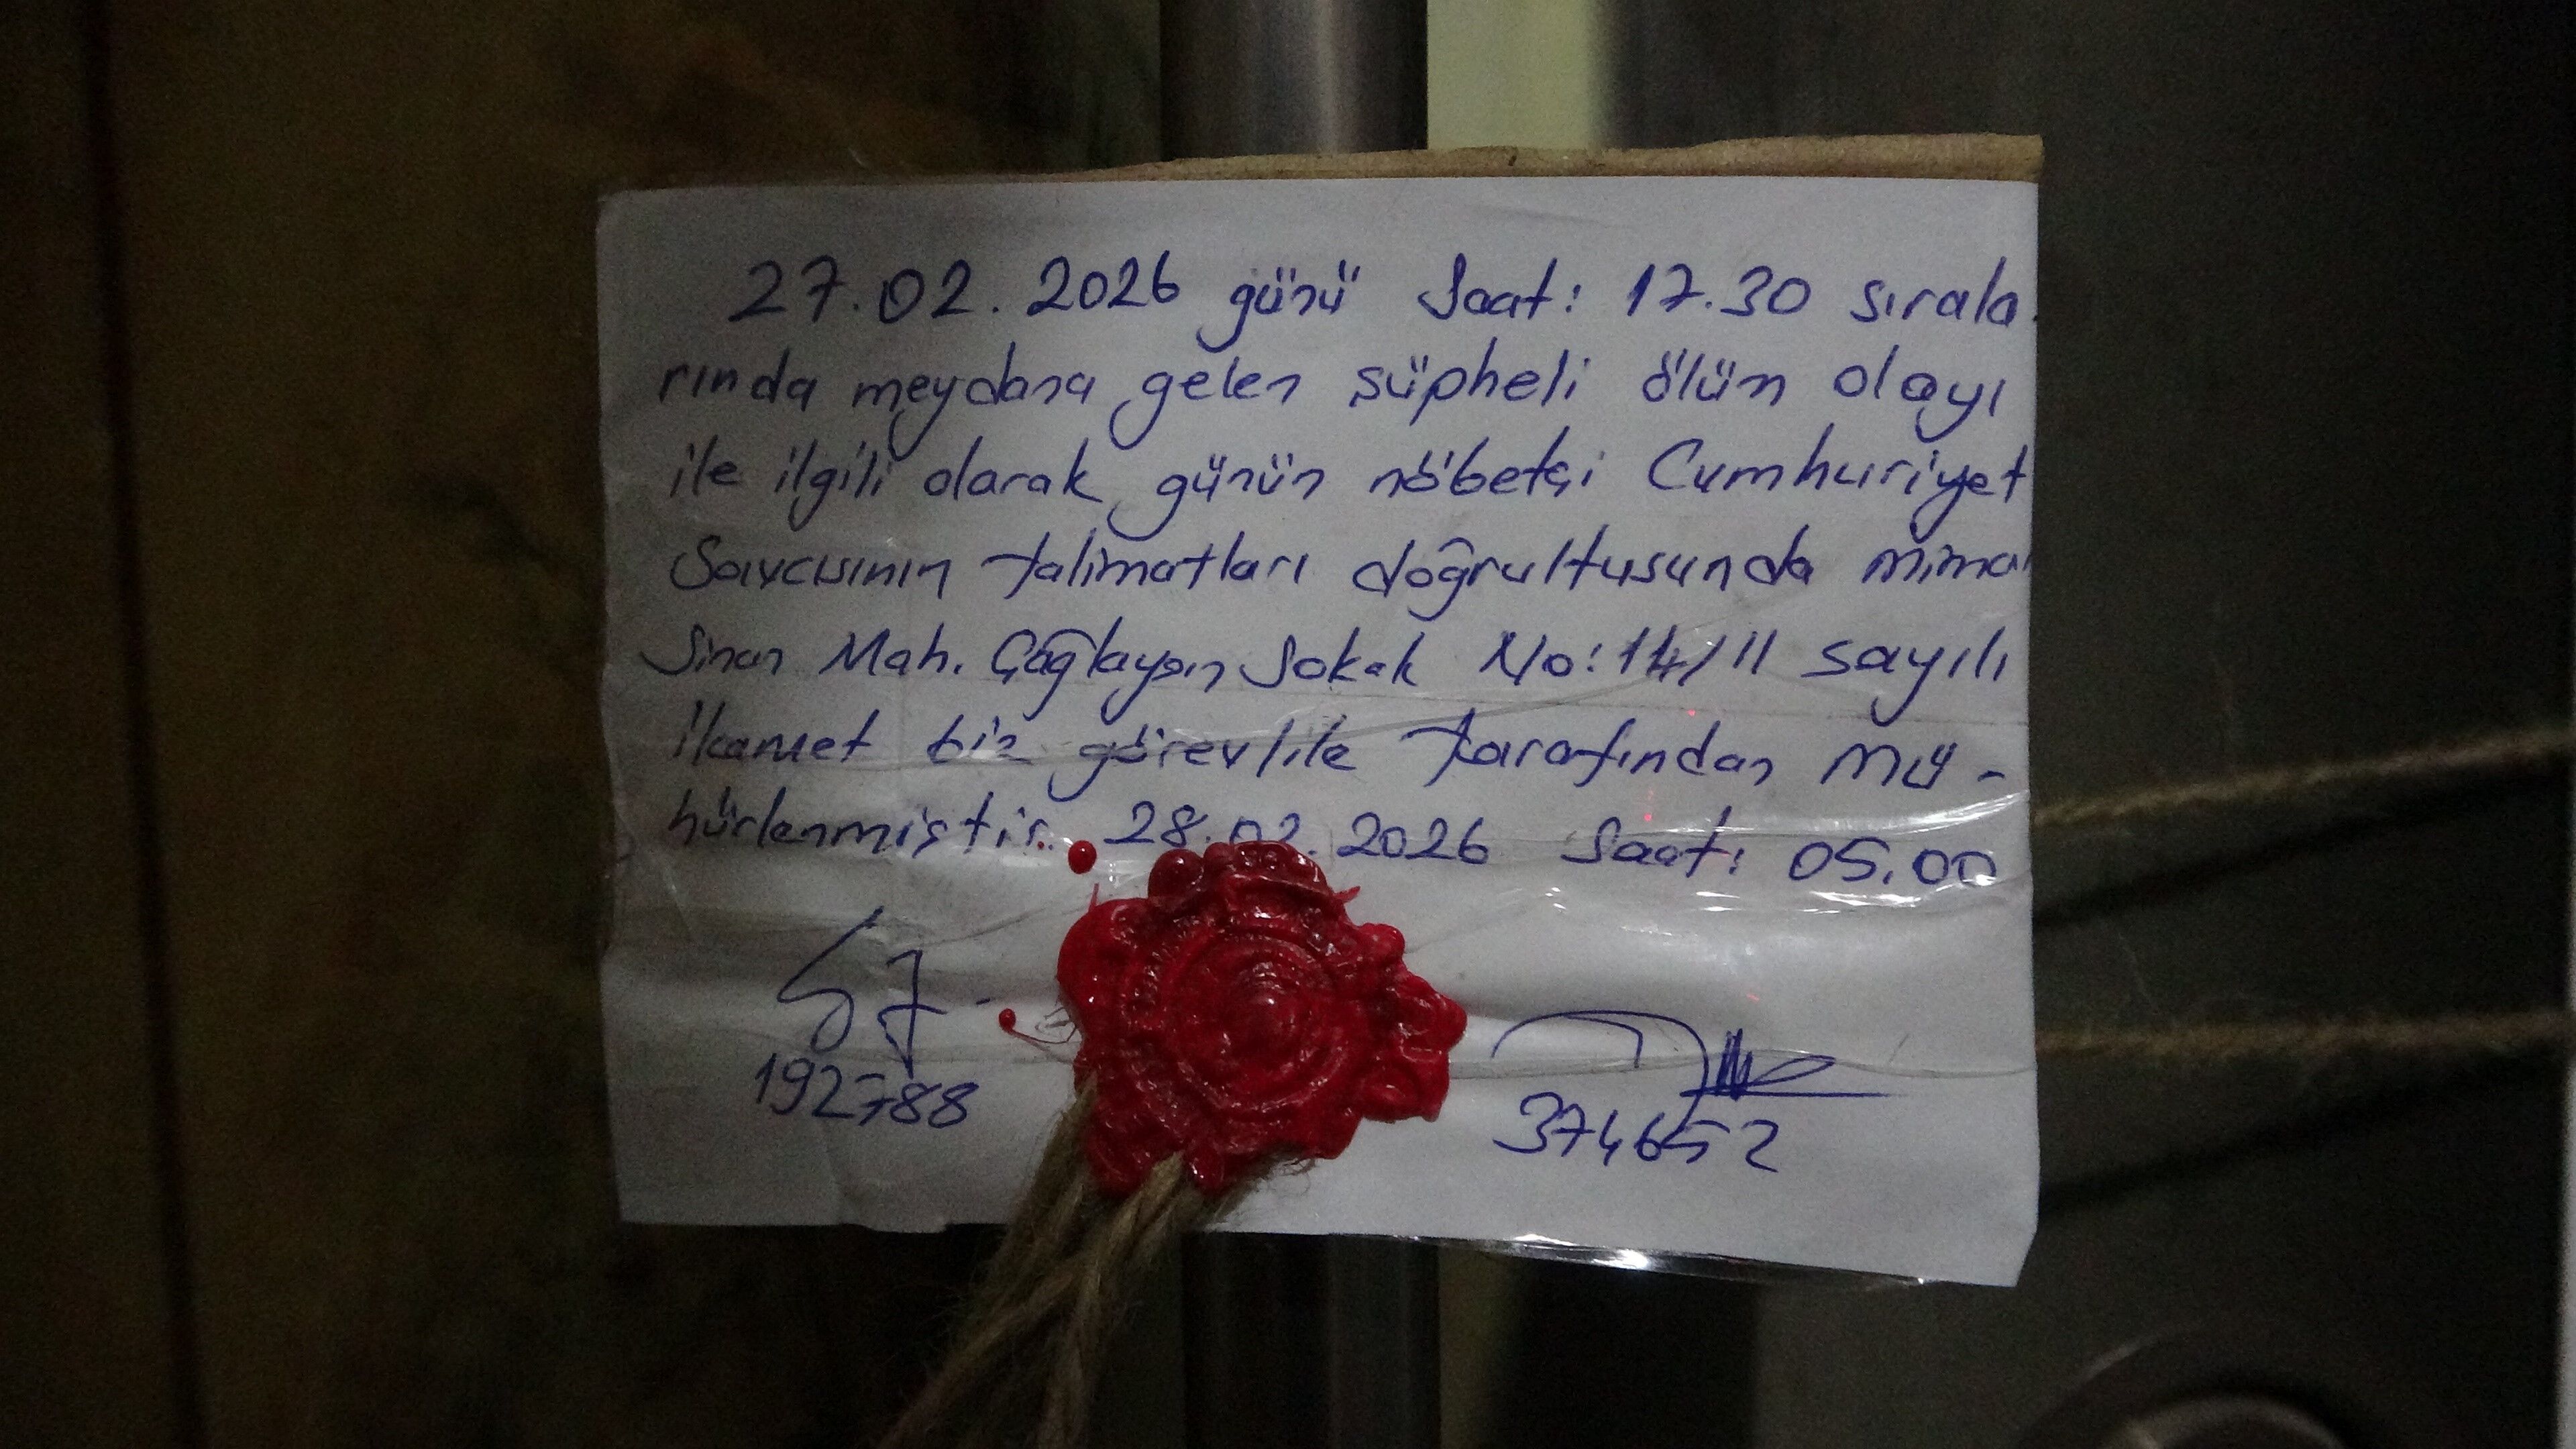 27.02.2026 günü Saat: 17.30 sırala
rında meydana gelen şüpheli ölüm olayı
ile ilgili olarak günün nöbetçi Cumhuriyet
Savcısının talimatları doğrultusunda mimar
Sinan Mah. Çağlayan Sokak No: 14/11 sayılı
ikamet biz görevlile tarafından mü-
hürlenmiştir. 28.02.2026 Saat: 05.00
192788
374652